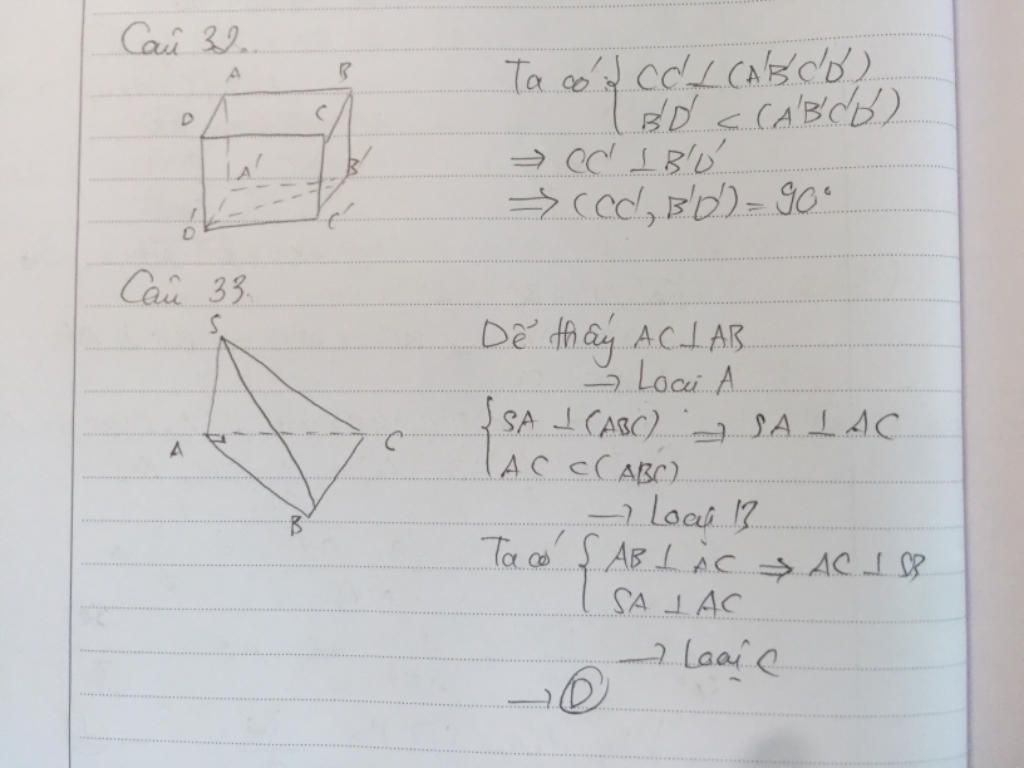 Câu 32.
A B
D C
A' B'
D' C'
Ta có { CC' ⊥ (A'B'C'D')
B'D' ⊂ (A'B'C'D')
⇒ CC' ⊥ B'D'
⇒ (CC', B'D') = 90°
Câu 33.
S
A C
B
Dễ thấy AC ⊥ AB
→ Loại A
{ SA ⊥ (ABC) ⇒ SA ⊥ AC
AC ⊂ (ABC)
→ Loại B
Ta có { AB ⊥ AC ⇒ AC ⊥ SB
SA ⊥ AC
→ Loại C
→ D